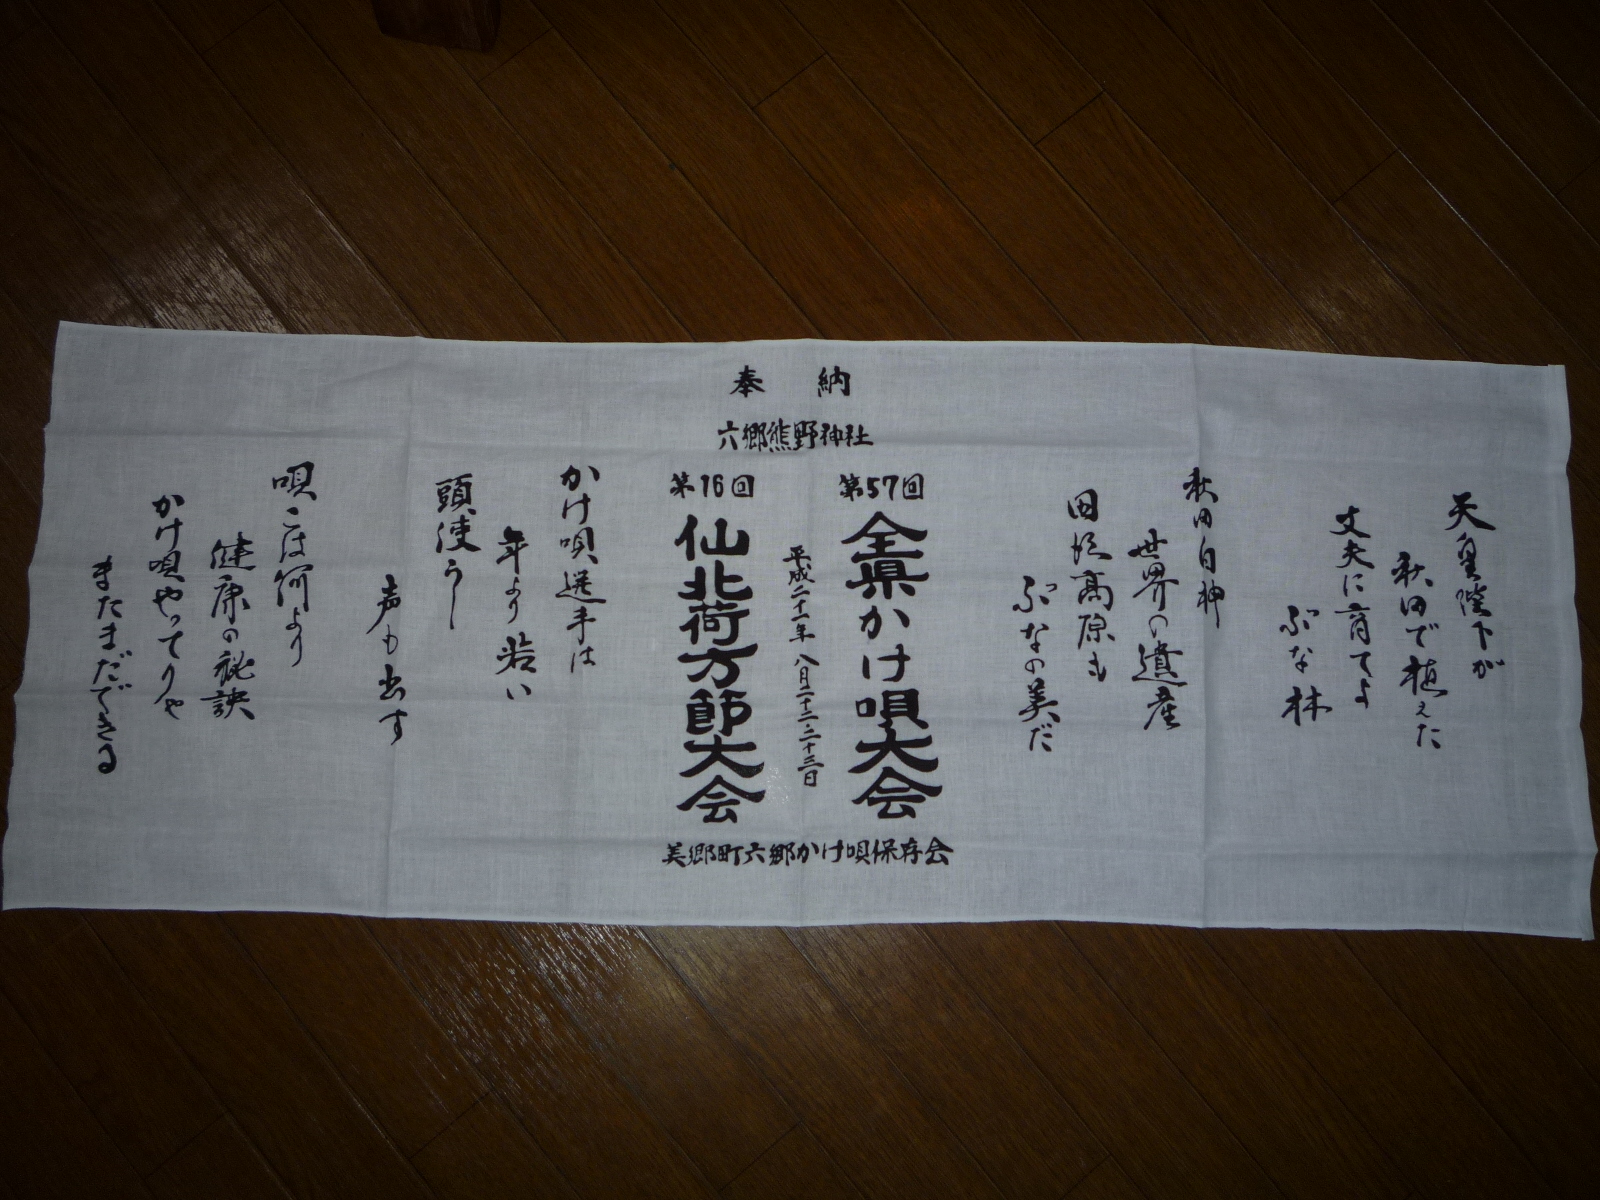 奉納
六郷熊野神社
天皇陛下が
秋田で植えた
丈夫に育てよ
ぶな林
秋田白神
世界の遺産
田沢高原も
ぶなの美だ
第57回
全県かけ唄大会
平成二十一年八月二十二・二十三日
第16回
仙北荷方節大会
かけ唄選手は
年より若い
頭使うし
声も出す
唄こは何より
健康の秘訣
かけ唄やってりゃ
まだまだできる
美郷町六郷かけ唄保存会